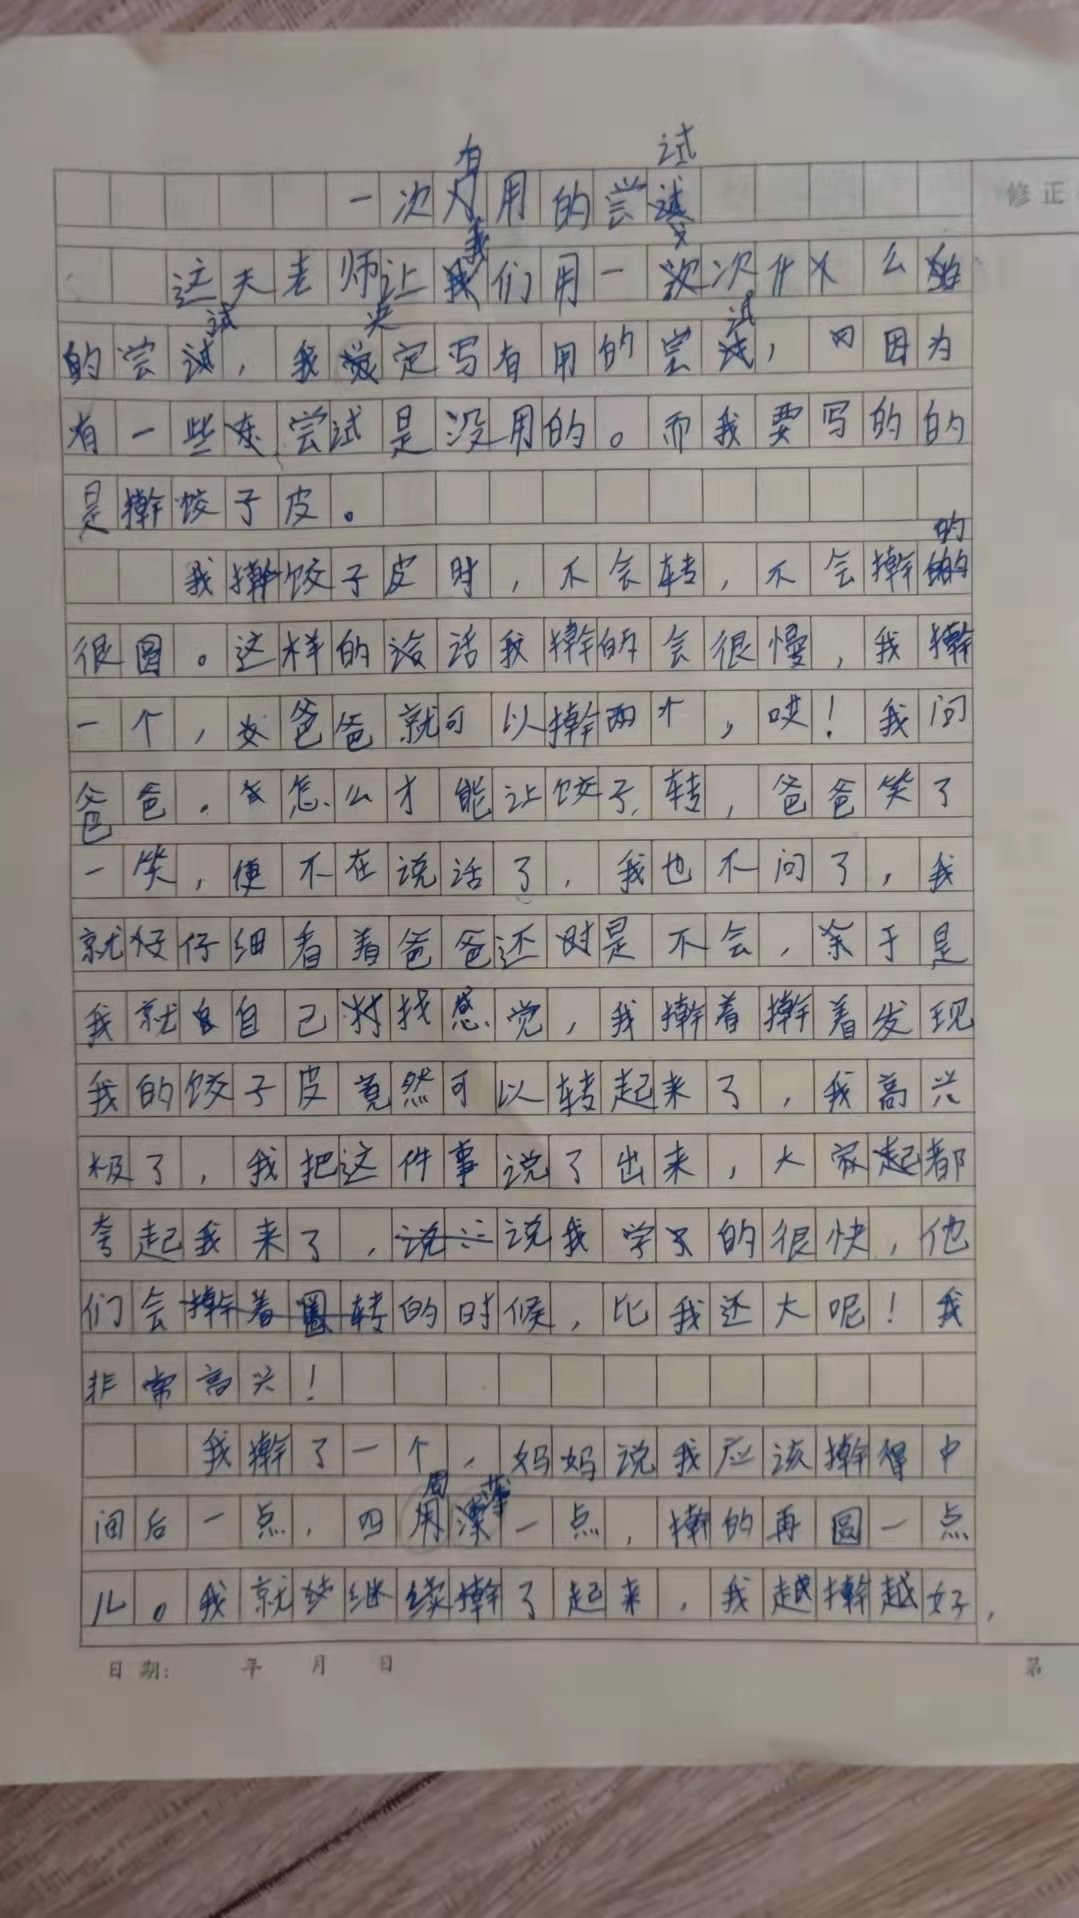 一次有用的尝试
修正
这天老师让我们用一次次什么的
的尝试，我决定写有用的尝试，因为
有一些尝试是没用的。而我要写的的
是擀饺子皮。
我擀饺子皮时，不会转，不会擀的
很圆。这样的话我擀的会很慢，我擀
一个，爸爸就可以擀两个，哎！我问
爸爸。怎么才能让饺子转，爸爸笑了
一笑，便不在说话了，我也不问了，我
就仔细看着爸爸还是不会，于是
我就自己找感觉，我擀着擀着发现
我的饺子皮竟然可以转起来了，我高兴
极了，我把这件事说了出来，大家都
夸起我来了，说我学的很快，他
们会转的时候，比我还大呢！我
非常高兴！
我擀了一个，妈妈说我应该擀得中
间后一点，四周薄一点，擀的再圆一点
儿。我就继续擀了起来，我越擀越好，
日期： 年 月 日
第